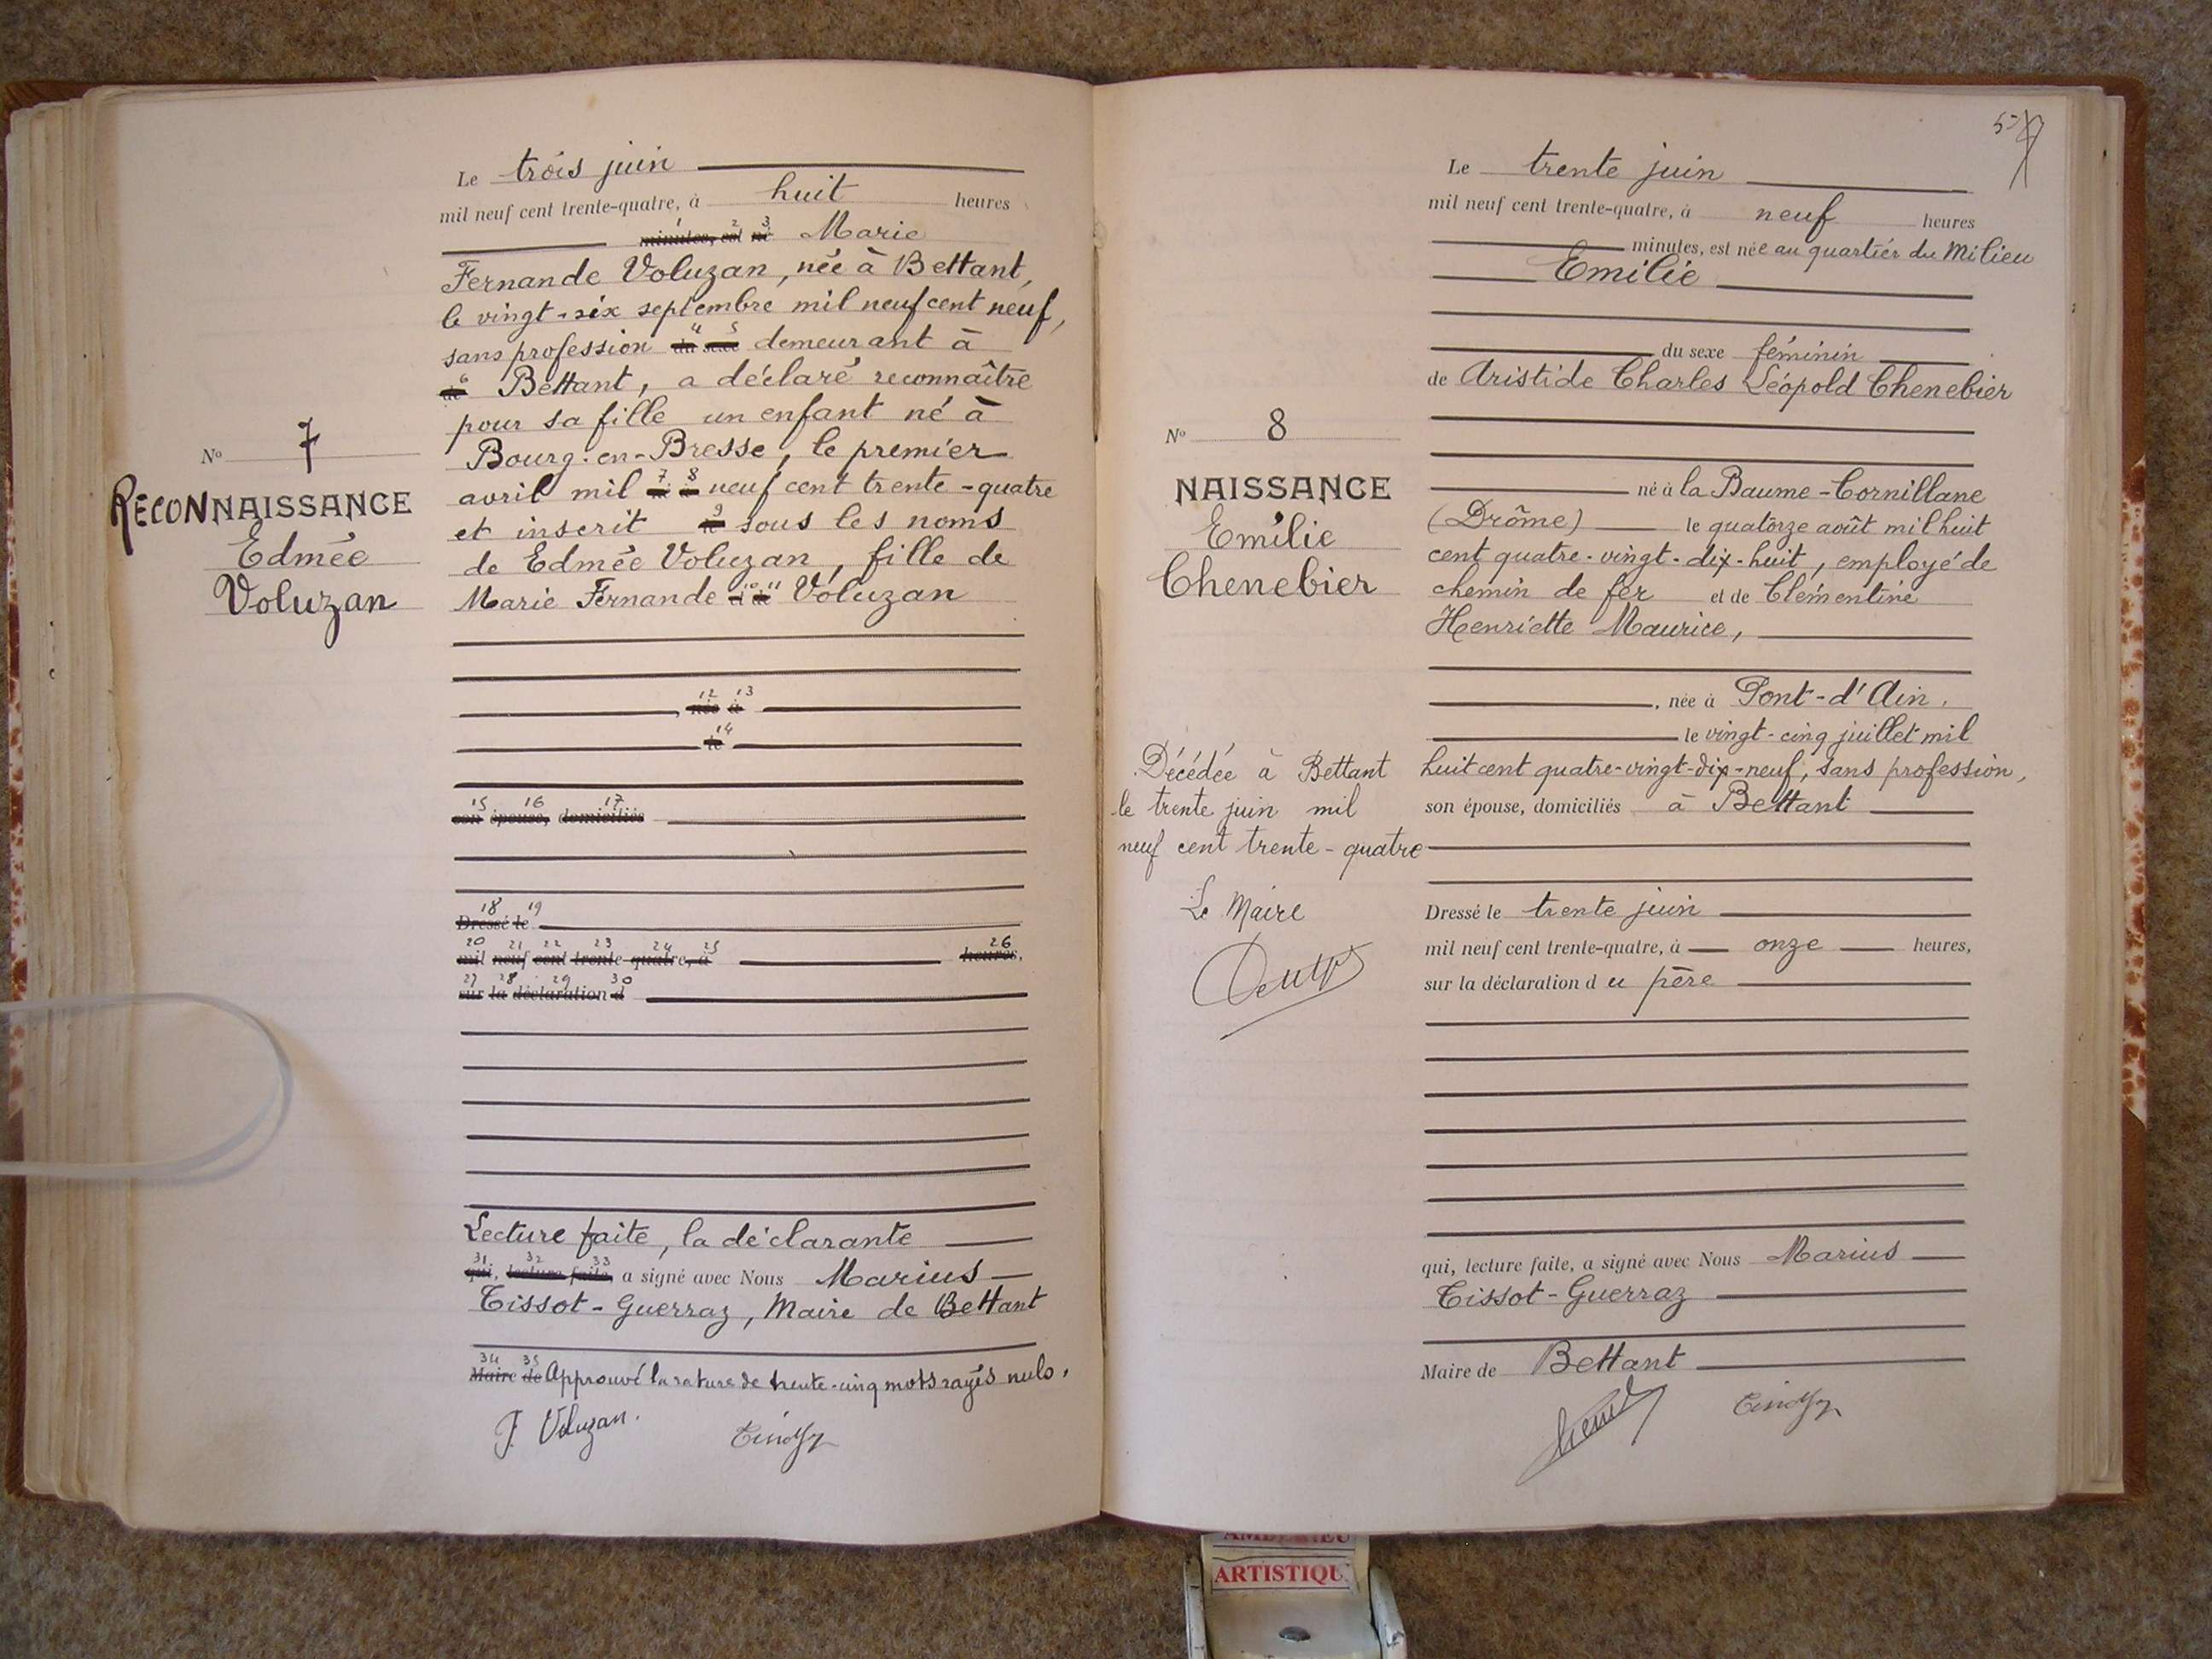 Le trois juin
mil neuf cent trente-quatre, à huit heures
1 2 3
minutes, est né Marie
Fernande Voluzan, née à Bettant,
le vingt-six septembre mil neuf cent neuf,
4 5
sans profession du sexe demeurant à
6
de Bettant, a déclaré reconnaître
pour sa fille un enfant né à
Bourg-en-Bresse, le premier
7 8
avril mil né à neuf cent trente-quatre
9
et inscrit le sous les noms
de Edmée Voluzan, fille de
10 11
Marie Fernande et de Voluzan
12 13
, née à
14
le
15 16 17
son épouse, domiciliés
18 19
Dressé le
20 21 22 23 24 25 26
mil neuf cent trente-quatre, à heures,
27 28 29 30
sur la déclaration d
Lecture faite, la déclarante
31 32 33
qui, lecture faite, a signé avec Nous Marius
Tissot-Guerraz, Maire de Bettant
34 35
Maire de Approuvé la rature de trente-cinq mots rayés nuls.
F. Voluzan.
No 7
RECONNAISSANCE
Edmée
Voluzan
Le trente juin
mil neuf cent trente-quatre, à neuf heures
minutes, est née au quartier du Milieu
Emilie
du sexe féminin
de Aristide Charles Léopold Chenebier
né à la Baume-Cornillane
(Drôme) le quatorze août mil huit
cent quatre-vingt-dix-huit, employé de
chemin de fer et de Clémentine
Henriette Maurice,
, née à Pont-d'Ain,
le vingt-cinq juillet mil
huit cent quatre-vingt-dix-neuf, sans profession,
son épouse, domiciliés à Bettant
Dressé le trente juin
mil neuf cent trente-quatre, à onze heures,
sur la déclaration du père
qui, lecture faite, a signé avec Nous Marius
Tissot-Guerraz
Maire de Bettant
No 8
NAISSANCE
Emilie
Chenebier
Décédée à Bettant
le trente juin mil
neuf cent trente-quatre
Le Maire
ARTISTIQU